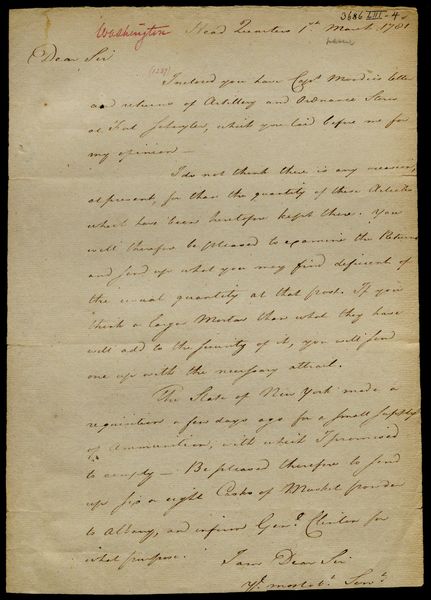 3686 LIII - 4
Washington
Head Quarters 1st March 1781
Dear Sir
(1237)
Inclosed you have Capt Moodies letter
and returns of Artillery and Ordnance Stores
at Fort Schuyler, which you laid before me for
my opinion —
I do not think there is any occasion,
at present, for than the quantity of those Articles
which have been heretofore kept there. You
will therefore be pleased to examine the Returns
and send up what you may find deficient of
the usual quantity at that post. If you
think a larger Mortar than what they have
will add to the security of it, you will send
one up with the necessary attirail.
The State of New York made a
requisition a few days ago for a small supply
of Ammunition, with which I promised
to comply — Be pleased therefore to send
up six or eight Casks of Musket powder
to Albany, and inform Genl. Clinton for
what purpose.
I am Dear Sir
Yr. most obt. Servt.